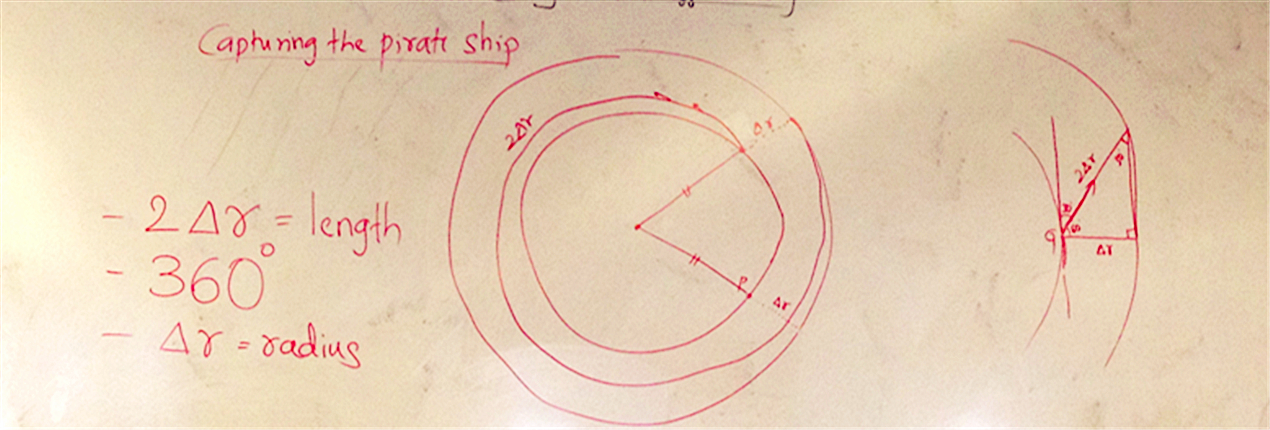 Capturing the pirate ship
- 2Δr = length
- 360°
- Δr = radius
2Δr
Δr
P
Δr
2Δr
Δr